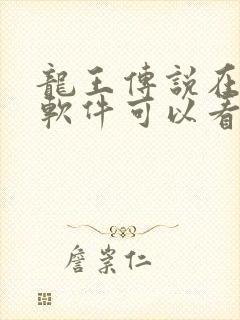 龍王傳說在
軟件可以看
詹崇仁